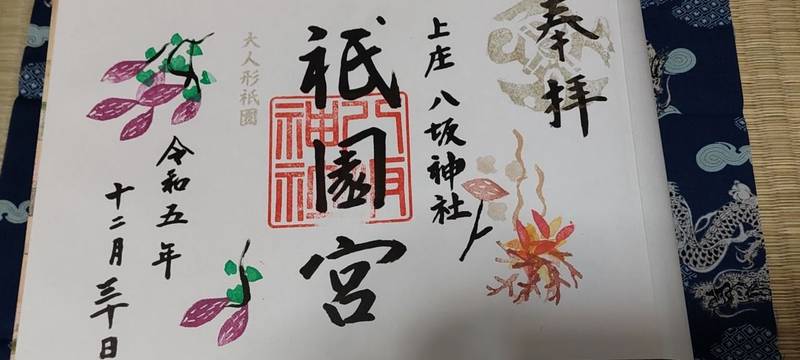 奉拝
上庄 八坂神社
祇園宮
八坂神社
大人形祇園
令和五年
十二月三十日